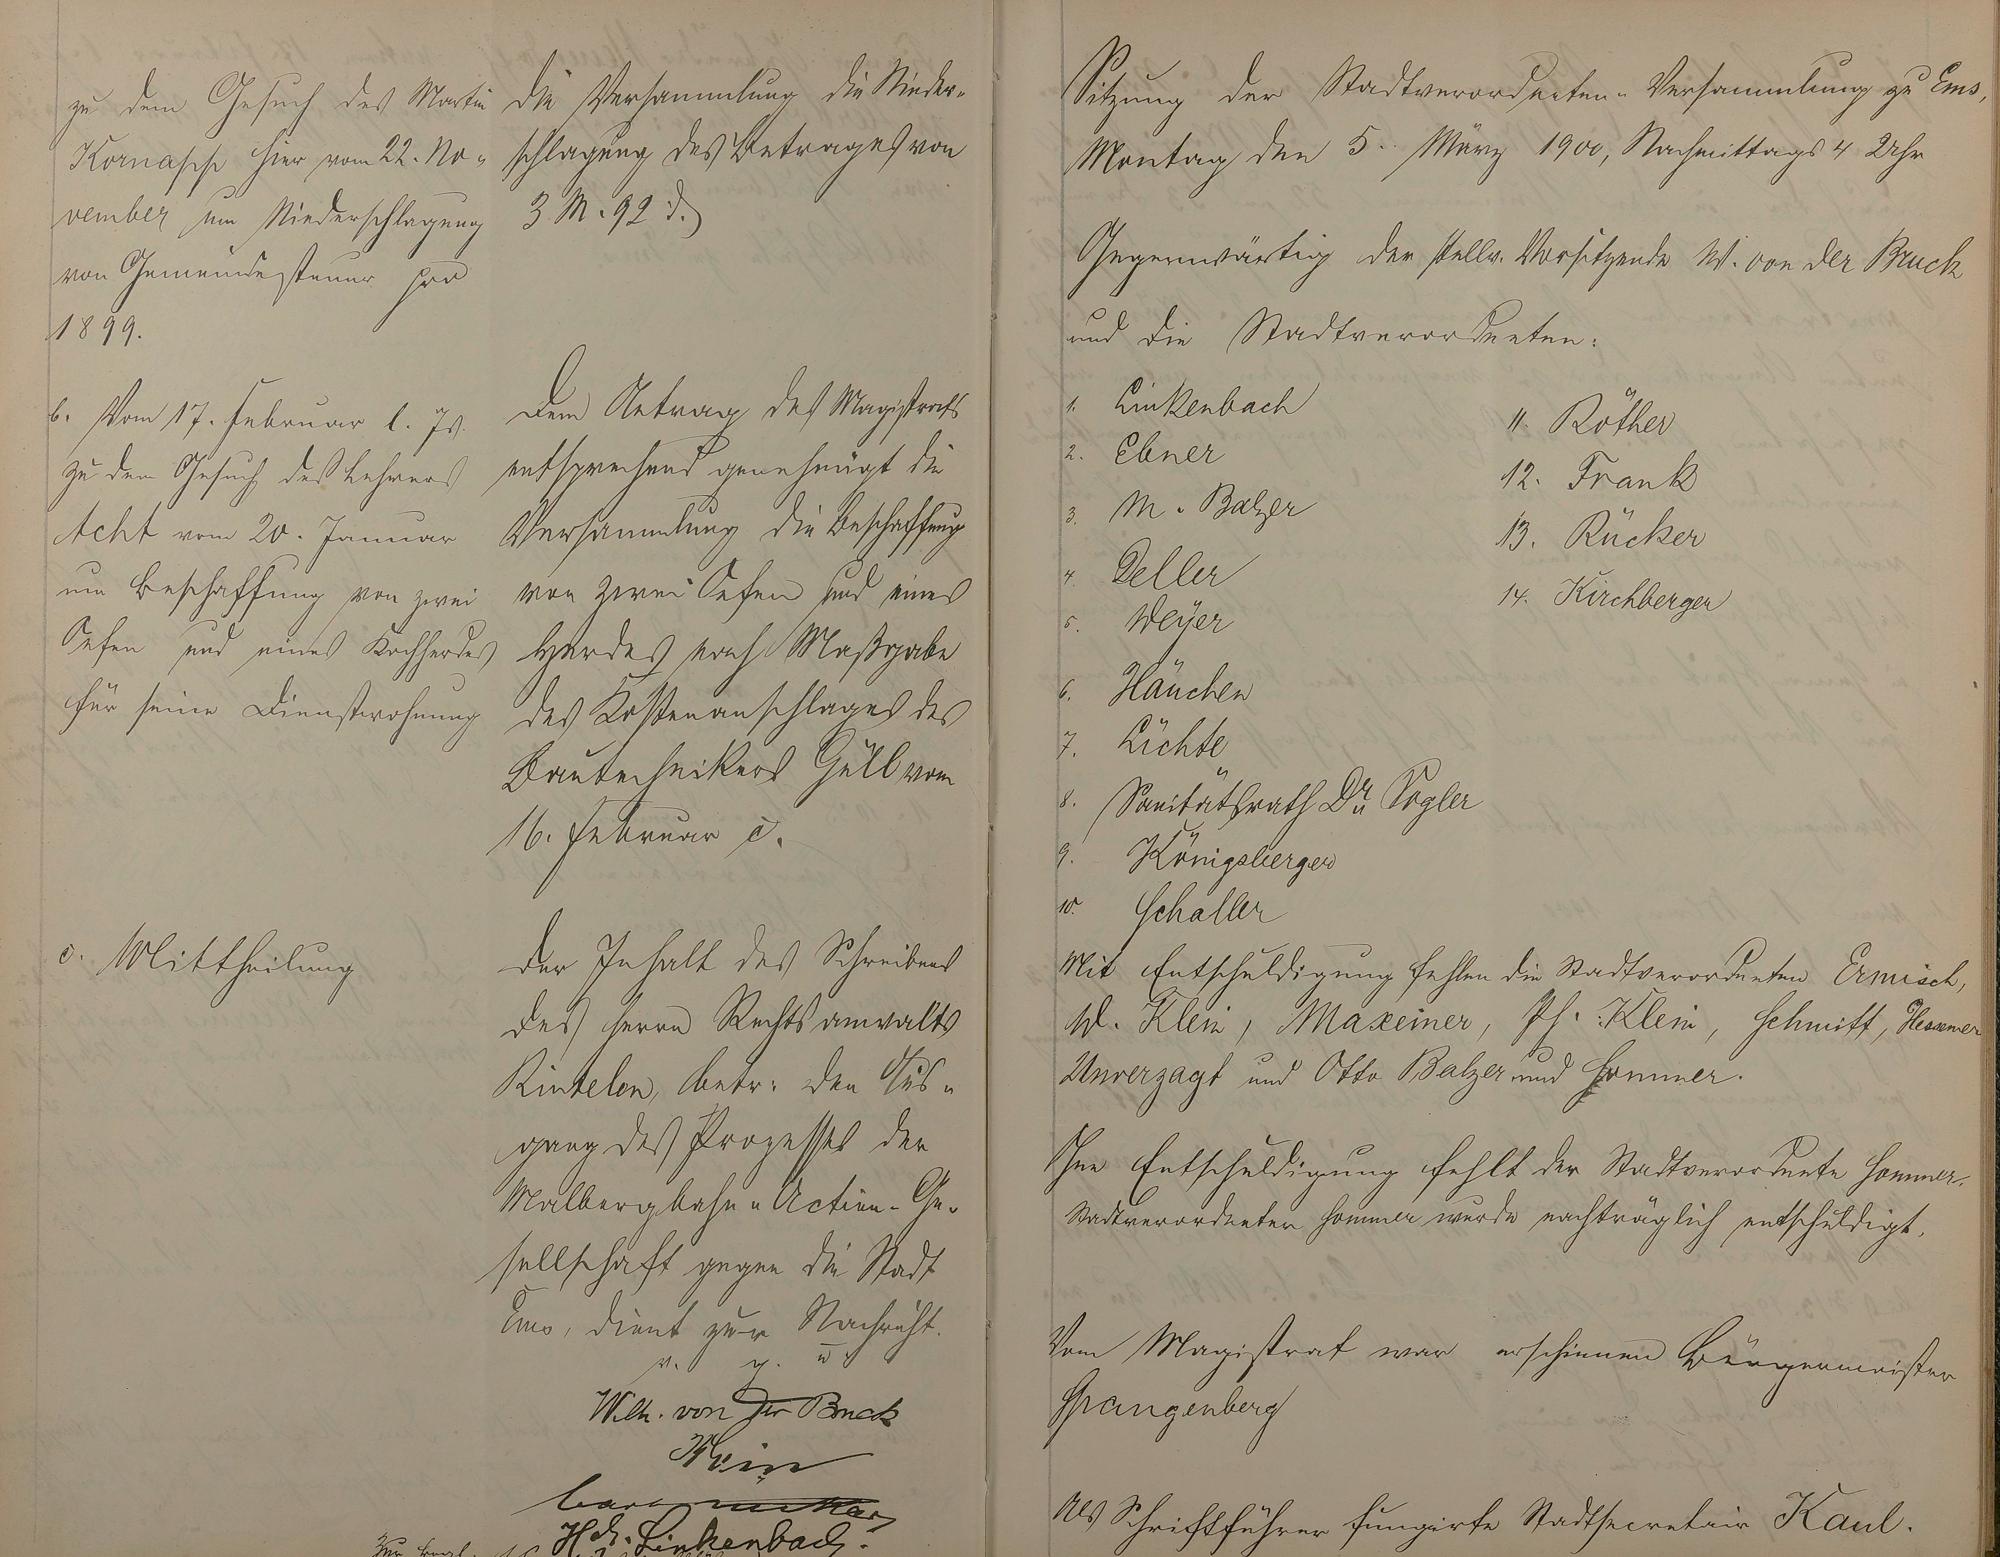 zu dem Gesuch des Martin
Kornapp hier vom 22. No-
vember um Niederschlagung
von Gemeindesteuer pro
1899.
die Versammlung die Nieder-
schlagung des Betrages von
3 M. 92 d.
b. Vom 17. Februar l. Js.
zu dem Gesuch des Lehrers
Acht vom 20. Januar
um Beschaffung von zwei
Oefen und eines Kochherdes
für seine Dienstwohnung
Dem Antrag des Magistrats
entsprechend genehmigt die
Versammlung die Beschaffung
von zwei Oefen und eines
Herdes nach Maßgabe
des Kostenanschlages des
Bautechnikers Güll vom
16. Februar c.
c. Mittheilung
Der Inhalt des Schreibens
des Herrn Rechtsanwalts
Rintelen, betr. den Aus-
gang des Prozesses der
Malbergbahn-Actien-Ge-
sellschaft gegen die Stadt
Ems, dient zur Nachricht.
v. g. u
Wilh. von der Bruck
Klein
Hch. Linkenbach.
Sitzung der Stadtverordneten-Versammlung zu Ems,
Montag den 5. März 1900, Nachmittags 4 Uhr
Gegenwärtig der stellv. Vorsitzende W. von der Bruck
und die Stadtverordneten:
1. Linkenbach
2. Ebner
3. M. Balzer
4. Deller
5. Weyer
6. Häuchen
7. Lichte
8. Sanitätsrath Dr. Vogler
9. Königsberger
10. Schaller
11. Röther
12. Frank
13. Rücker
14. Kirchberger
Mit Entschuldigung fehlen die Stadtverordneten Ermisch,
W. Klein, Maxeiner, Ph. Klein, Schmitt, Hessemer
Unverzagt und Otto Balzer und Sommer.
Ohne Entschuldigung fehlt der Stadtverordnete Sommer.
Stadtverordneter Sommer wurde nachträglich entschuldigt.
Vom Magistrat war erschienen Bürgermeister
Spangenberg
Als Schriftführer fungirte Stadtsecretair Kaul.